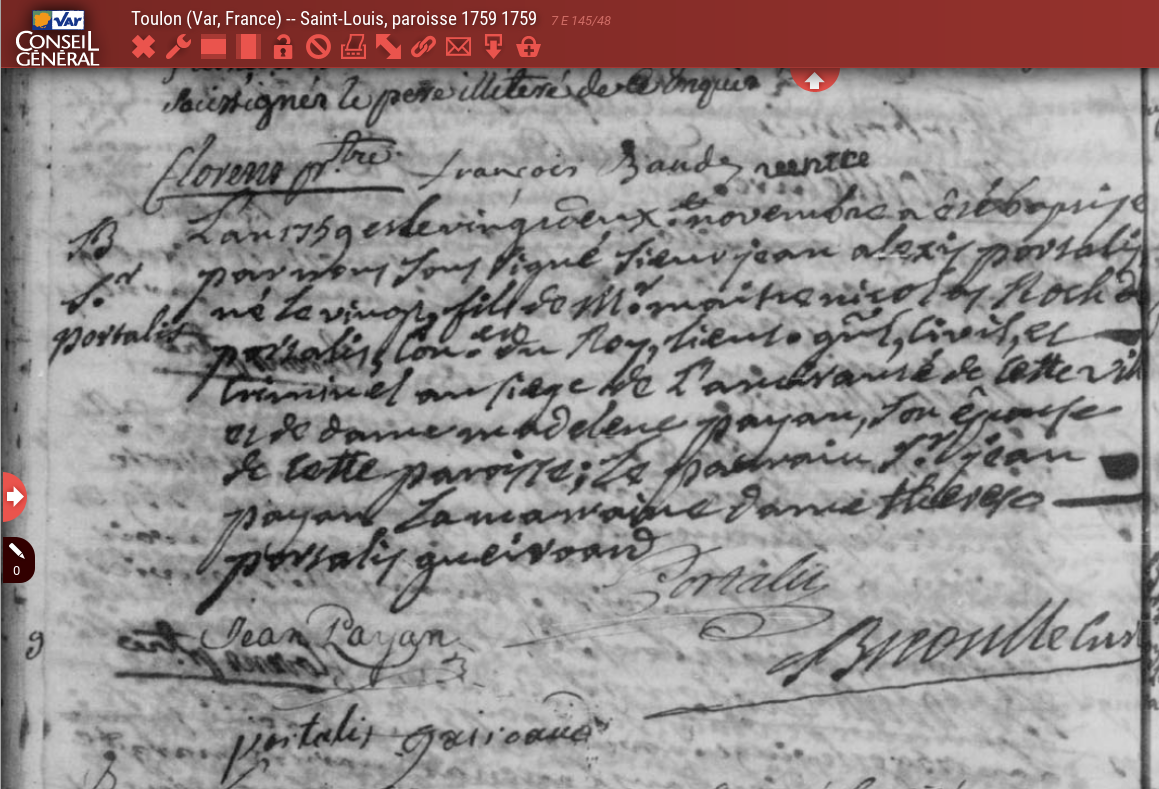 VAR
CONSEIL
GÉNÉRAL
Toulon (Var, France) -- Saint-Louis, paroisse 1759 1759 7 E 145/48
0
soussignés le pere illiteré de ce enquis
françois Baude
B
S.r
portalis
L'an 1759 et le vingt deux novembre a été baptisé
par nous sous signé sieur jean alexis portalis
né le vingt, fils de Mr. maitre nicolas Roch de
portalis, Con.er du Roy, lieut. gñl, Civil, et
Criminel au siege de L'amirauté de cette vill
et de dame madelene payan, son épouse
de cette paroisse; le parrain S.r jean
payan La marraine dame therese
portalis gueiroard
Portalis
Jean Payan
Broutte Curé
portalis gairoard
9